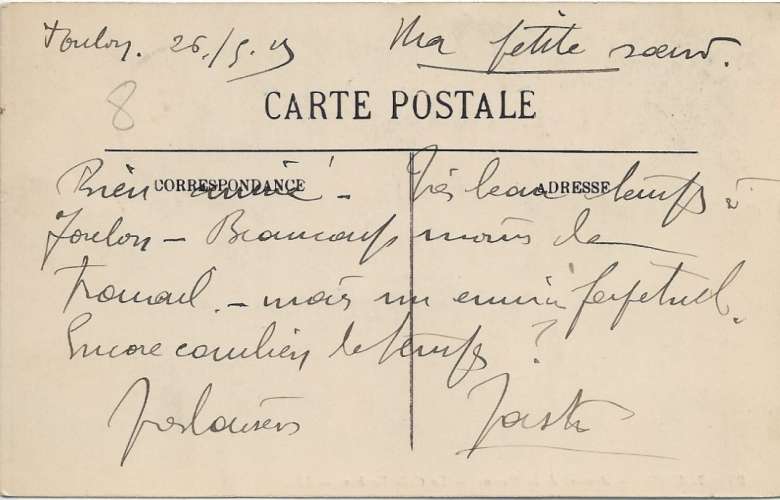 Toulon. 26/5.15 Ma petite sœur.
8
CARTE POSTALE
CORRESPONDANCE ADRESSE
Bien arrivé - Très beau temps à
Toulon - Beaucoup moins de
travail. - mais un ennui perpetuel.
Encore combien de temps ?